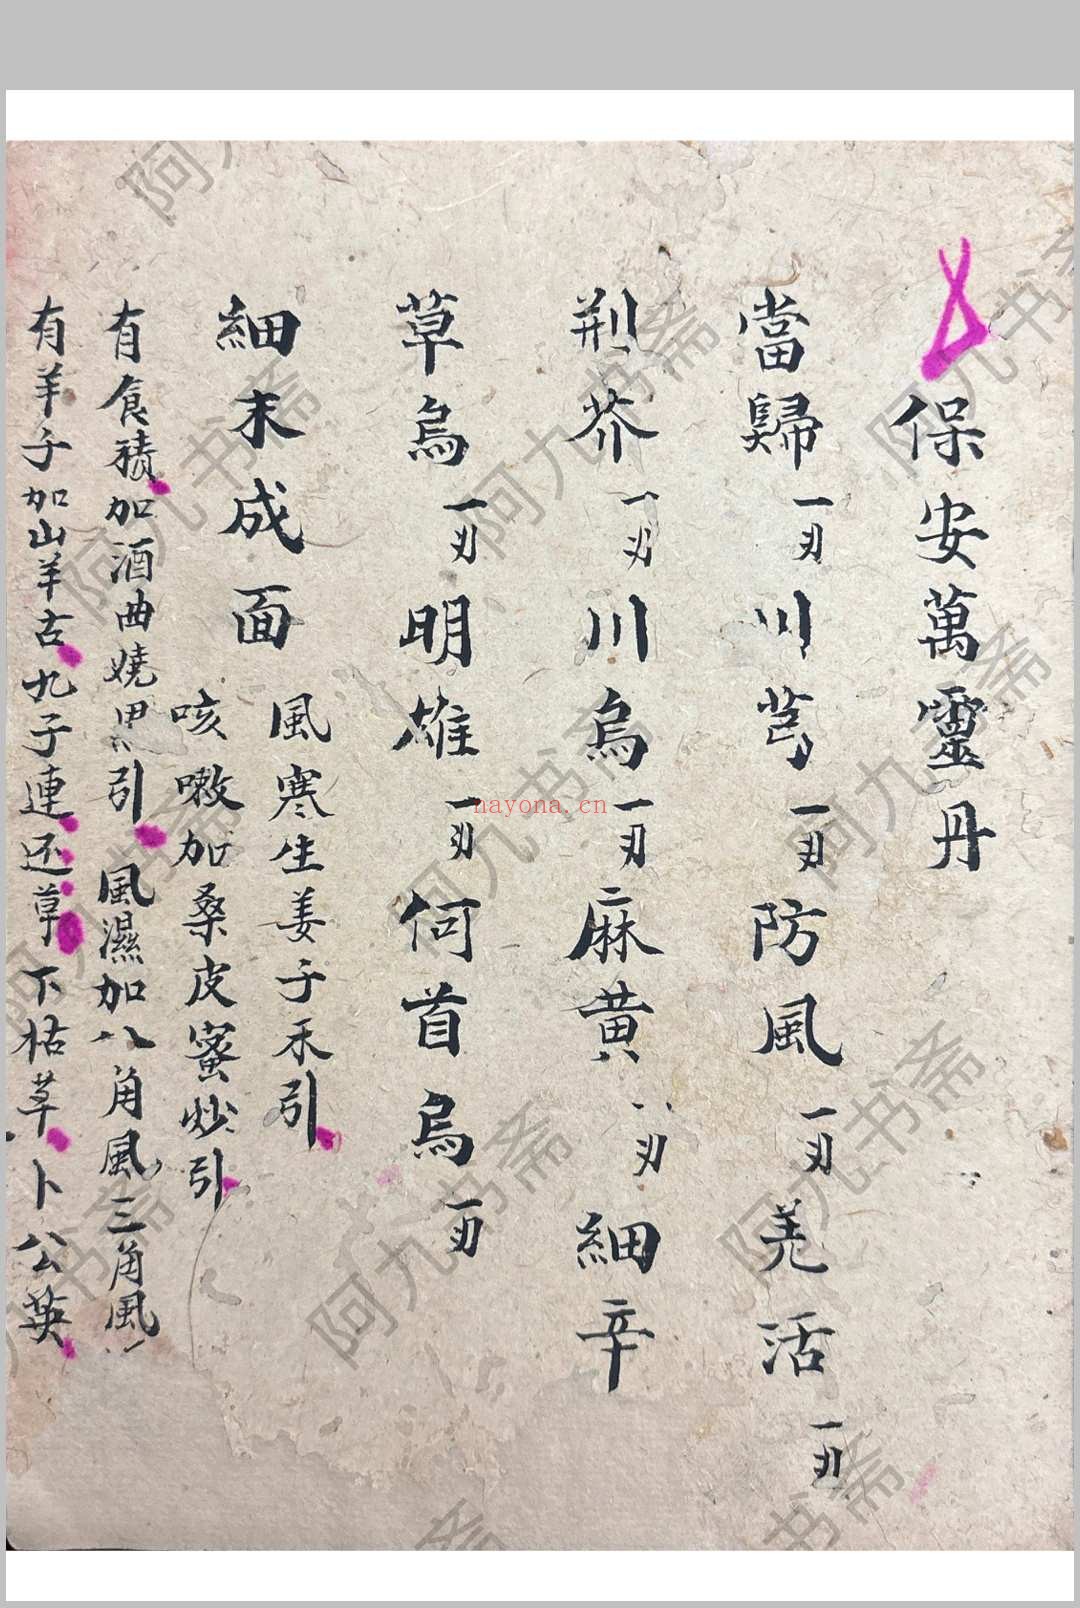 保安萬靈丹
當歸一刄川芎一刄防風一刄羌活一刄
荆芥一刄川烏一刄麻黄八刄細辛
草烏一刄明雄一刄何首烏一刄
細末成面
風寒生姜子禾引
咳嗽加桑皮蜜炒引
有食積加酒曲燒黑引風濕加八角風三角風
有羊子加山羊古九子連还草下枯草卜公英
nayona.cn
阿九书斋